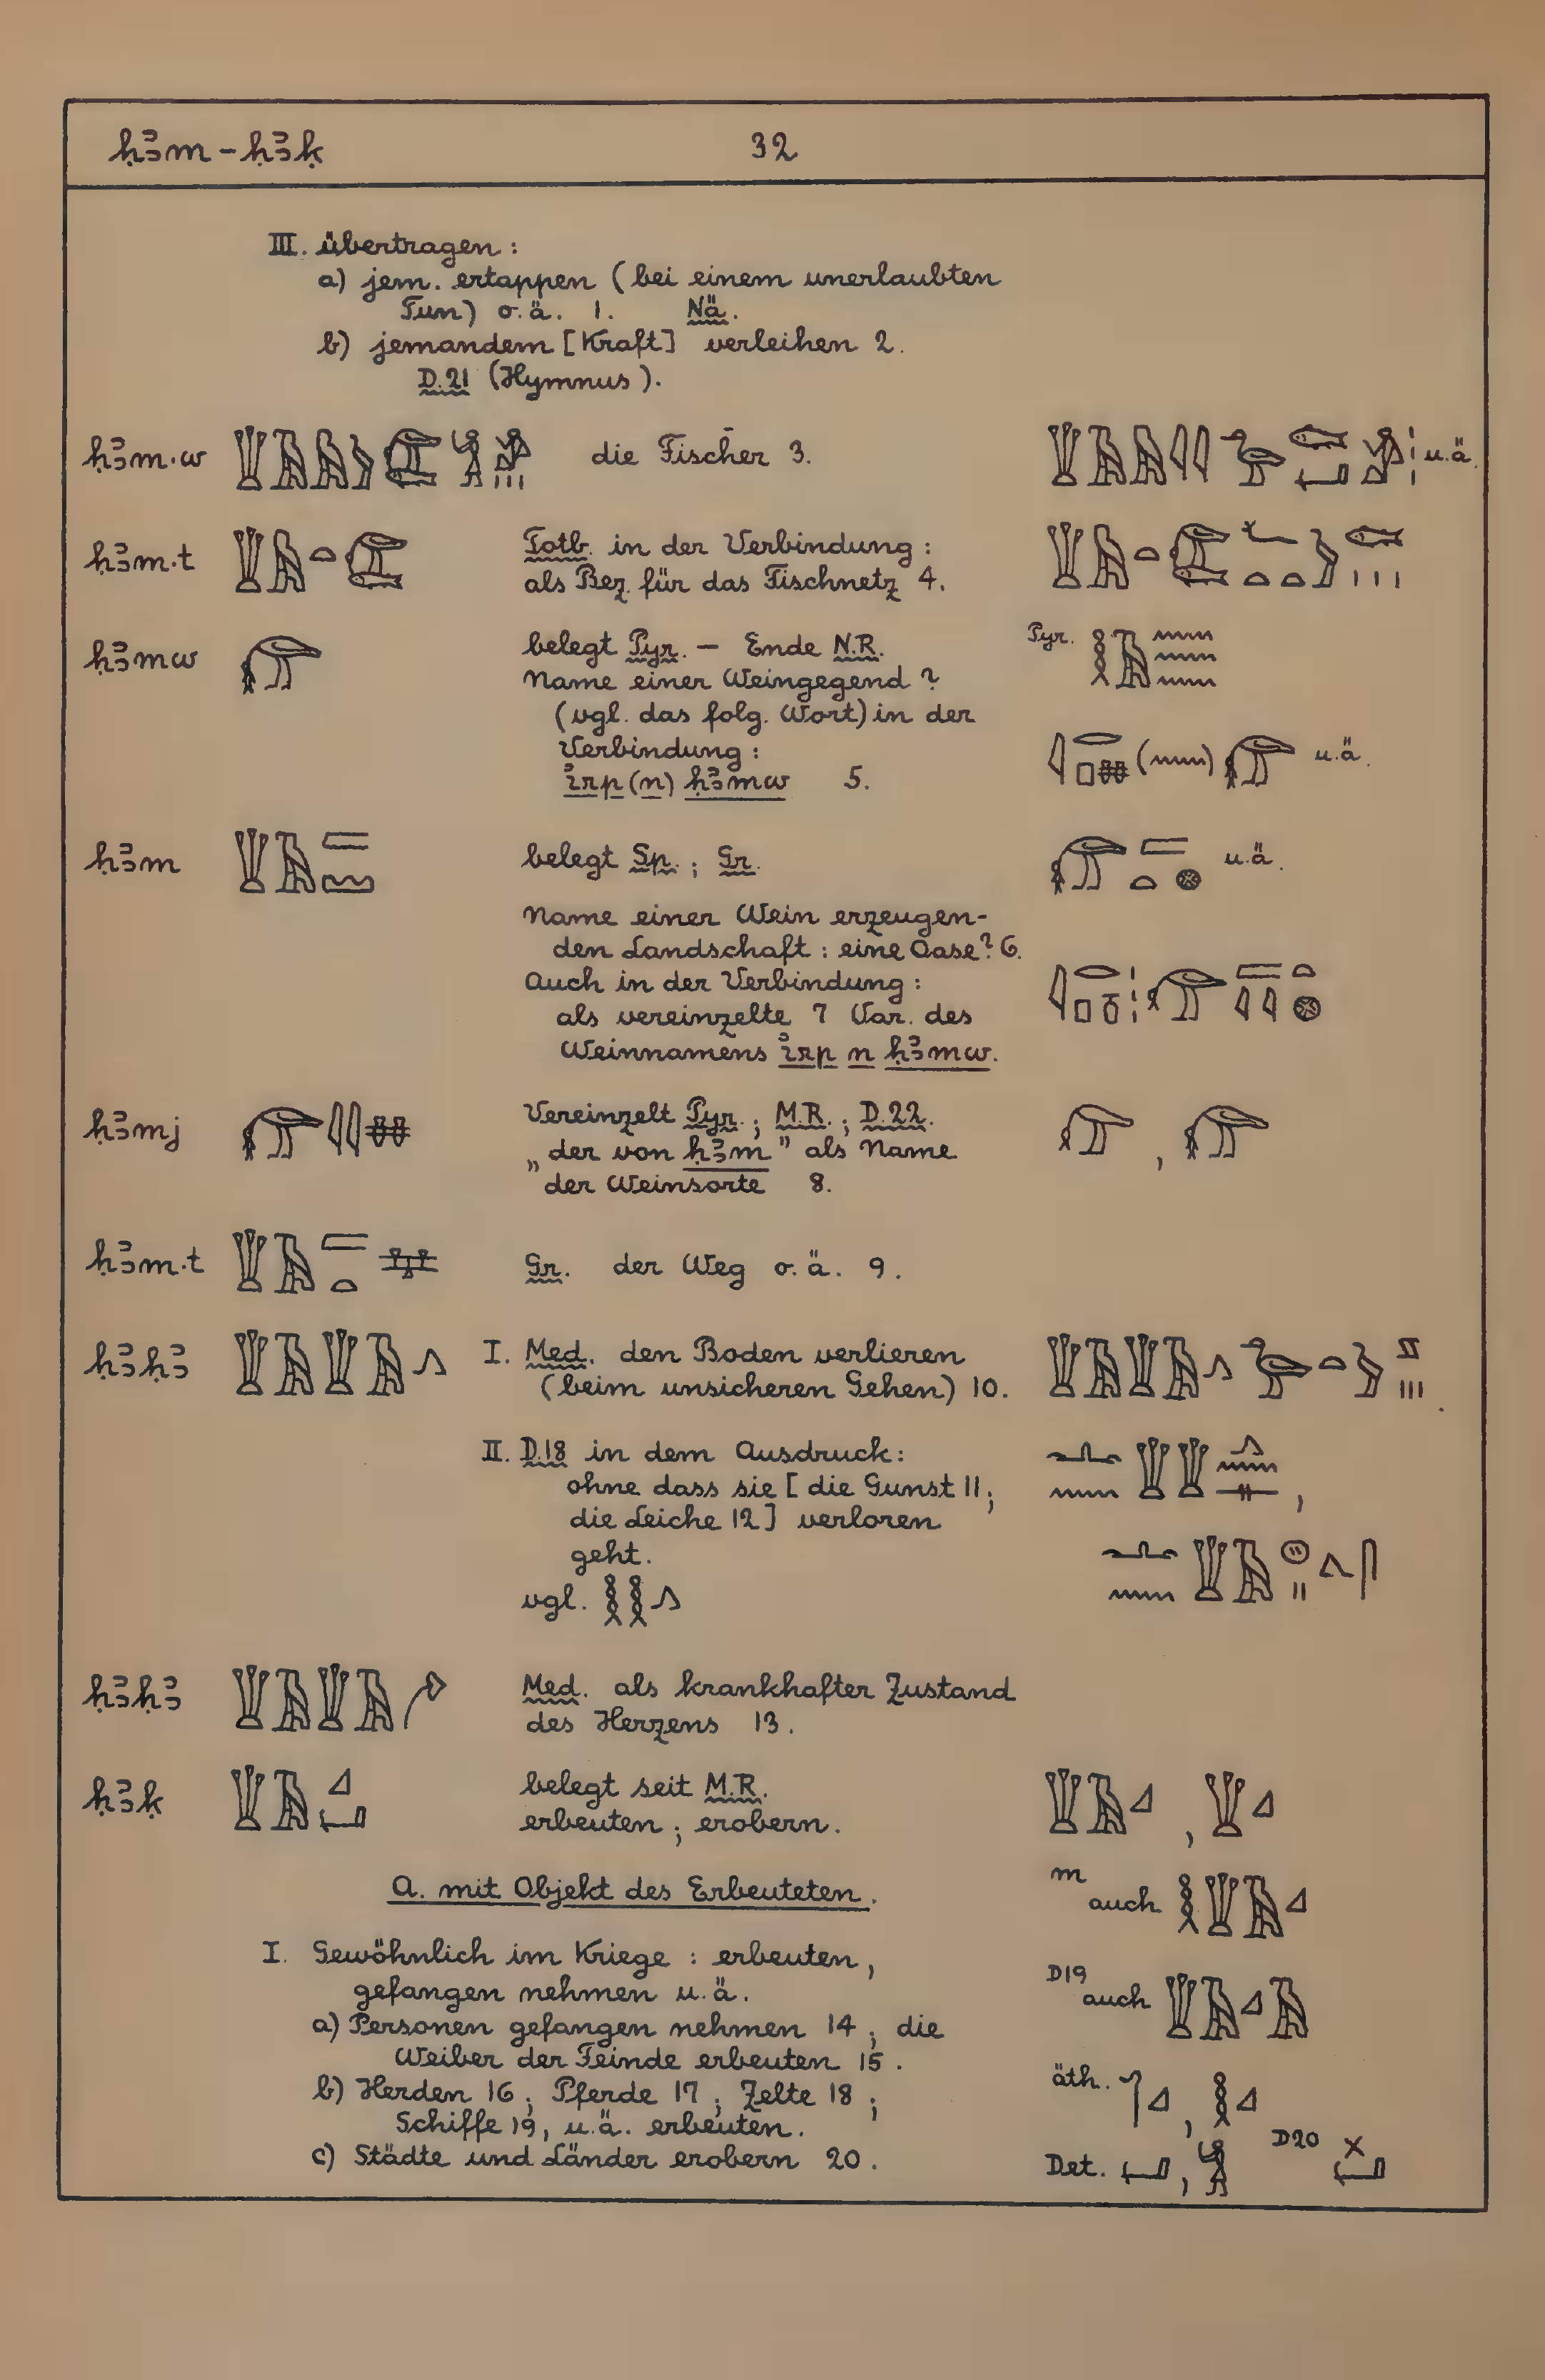 ḥꜣm – ḥꜣḳ 32
III. übertragen :
a) jem. ertappen ( bei einem unerlaubten
Tun ) o. ä. 1. Nä.
b) jemandem [ Kraft ] verleihen 2.
D. 21 ( Hymnus ).
ḥꜣm·w die Fischer 3. u. ä.
ḥꜣm·t Totb. in der Verbindung :
als Bez. für das Fischnetz 4.
ḥꜣmw belegt Pyr. – Ende N.R. Pyr.
Name einer Weingegend ?
( vgl. das folg. Wort ) in der
Verbindung :
u. ä.
ı͗rp (n) ḥꜣmw 5.
ḥꜣm belegt Sp. ; Gr. u. ä.
Name einer Wein erzeugen-
den Landschaft : eine Oase ? 6.
Auch in der Verbindung :
als vereinzelte 7 Var. des
Weinnamens ı͗rp n ḥꜣmw.
ḥꜣmj Vereinzelt Pyr. ; M.R. ; D. 22.
„ der von ḥꜣm " als Name
der Weinsorte 8.
ḥꜣm·t Gr. der Weg o. ä. 9.
ḥꜣḥꜣ I. Med. den Boden verlieren
( beim unsicheren Gehen ) 10.
II. D. 18 in dem Ausdruck :
ohne dass sie [ die Gunst 11 ;
die Leiche 12 ] verloren
geht.
vgl.
ḥꜣḥꜣ Med. als krankhafter Zustand
des Herzens 13.
ḥꜣḳ belegt seit M.R.
erbeuten ; erobern.
m auch
A. mit Objekt des Erbeuteten.
I. Gewöhnlich im Kriege : erbeuten ,
gefangen nehmen u. ä.
D19 auch
a) Personen gefangen nehmen 14 ; die
Weiber der Feinde erbeuten 15.
äth.
b) Herden 16 ; Pferde 17 ; Zelte 18 ;
Schiffe 19 , u. ä. erbeuten.
c) Städte und Länder erobern 20.
Det. D20